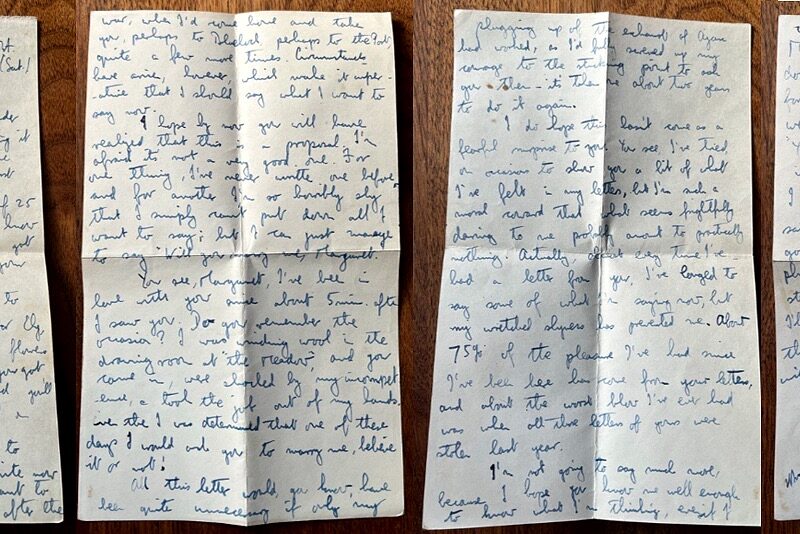 war, when I'd come home and take
you, perhaps to perhaps to the
quite a few more times. Circumstances
have arisen, however, which make it imper-
-ative that I should say what I want to
say now.
I hope by now you will have
realized that this is a proposal. I'm
afraid its not a very good one. For
one thing, I've never written one before,
and for another I'm so horribly shy
that I simply cannot put down all I
want to say; but I can just manage
to say "Will you marry me, Margaret.
You see, Margaret, I've been in
love with you since about 5 min. after
I saw you. Do you remember the
occasion? I was winding wool in the
drawing room at the Meadow, and you
came in, were shocked by my incompet-
ence, & took the job out of my hands.
Ever since then I was determined that one of these
days I would ask you to marry me, believe
it or not!
All this letter would, you know, have
been quite unnecessary if only my
plugging up of the exhaust of
had worked, as I'd fully screwed up my
courage to the sticking point to ask
you then - its taken me about two years
to do it again.
I do hope this hasn't come as a
fearful surprise to you. You see, I've tried
on occasions to show you a bit of what
I've felt in my letters, but I'm such a
moral coward that what seems frightfully
daring to me probably amounts to practically
nothing. Actually, about every time I've
had a letter from you, I've longed to
say some of what I'm saying now, but
my wretched shyness has prevented me. About
75% of the pleasure I've had since
I've been here has come from your letters,
and about the worst blow I've ever had
was when all those letters of yours were
stolen last year.
I'm not going to say much more,
because I hope you know me well enough
to know what I'm thinking, even if I
(Sat.)
of 25
know
got
your
to
Ely
flowers
you got
to
now
want to
after the